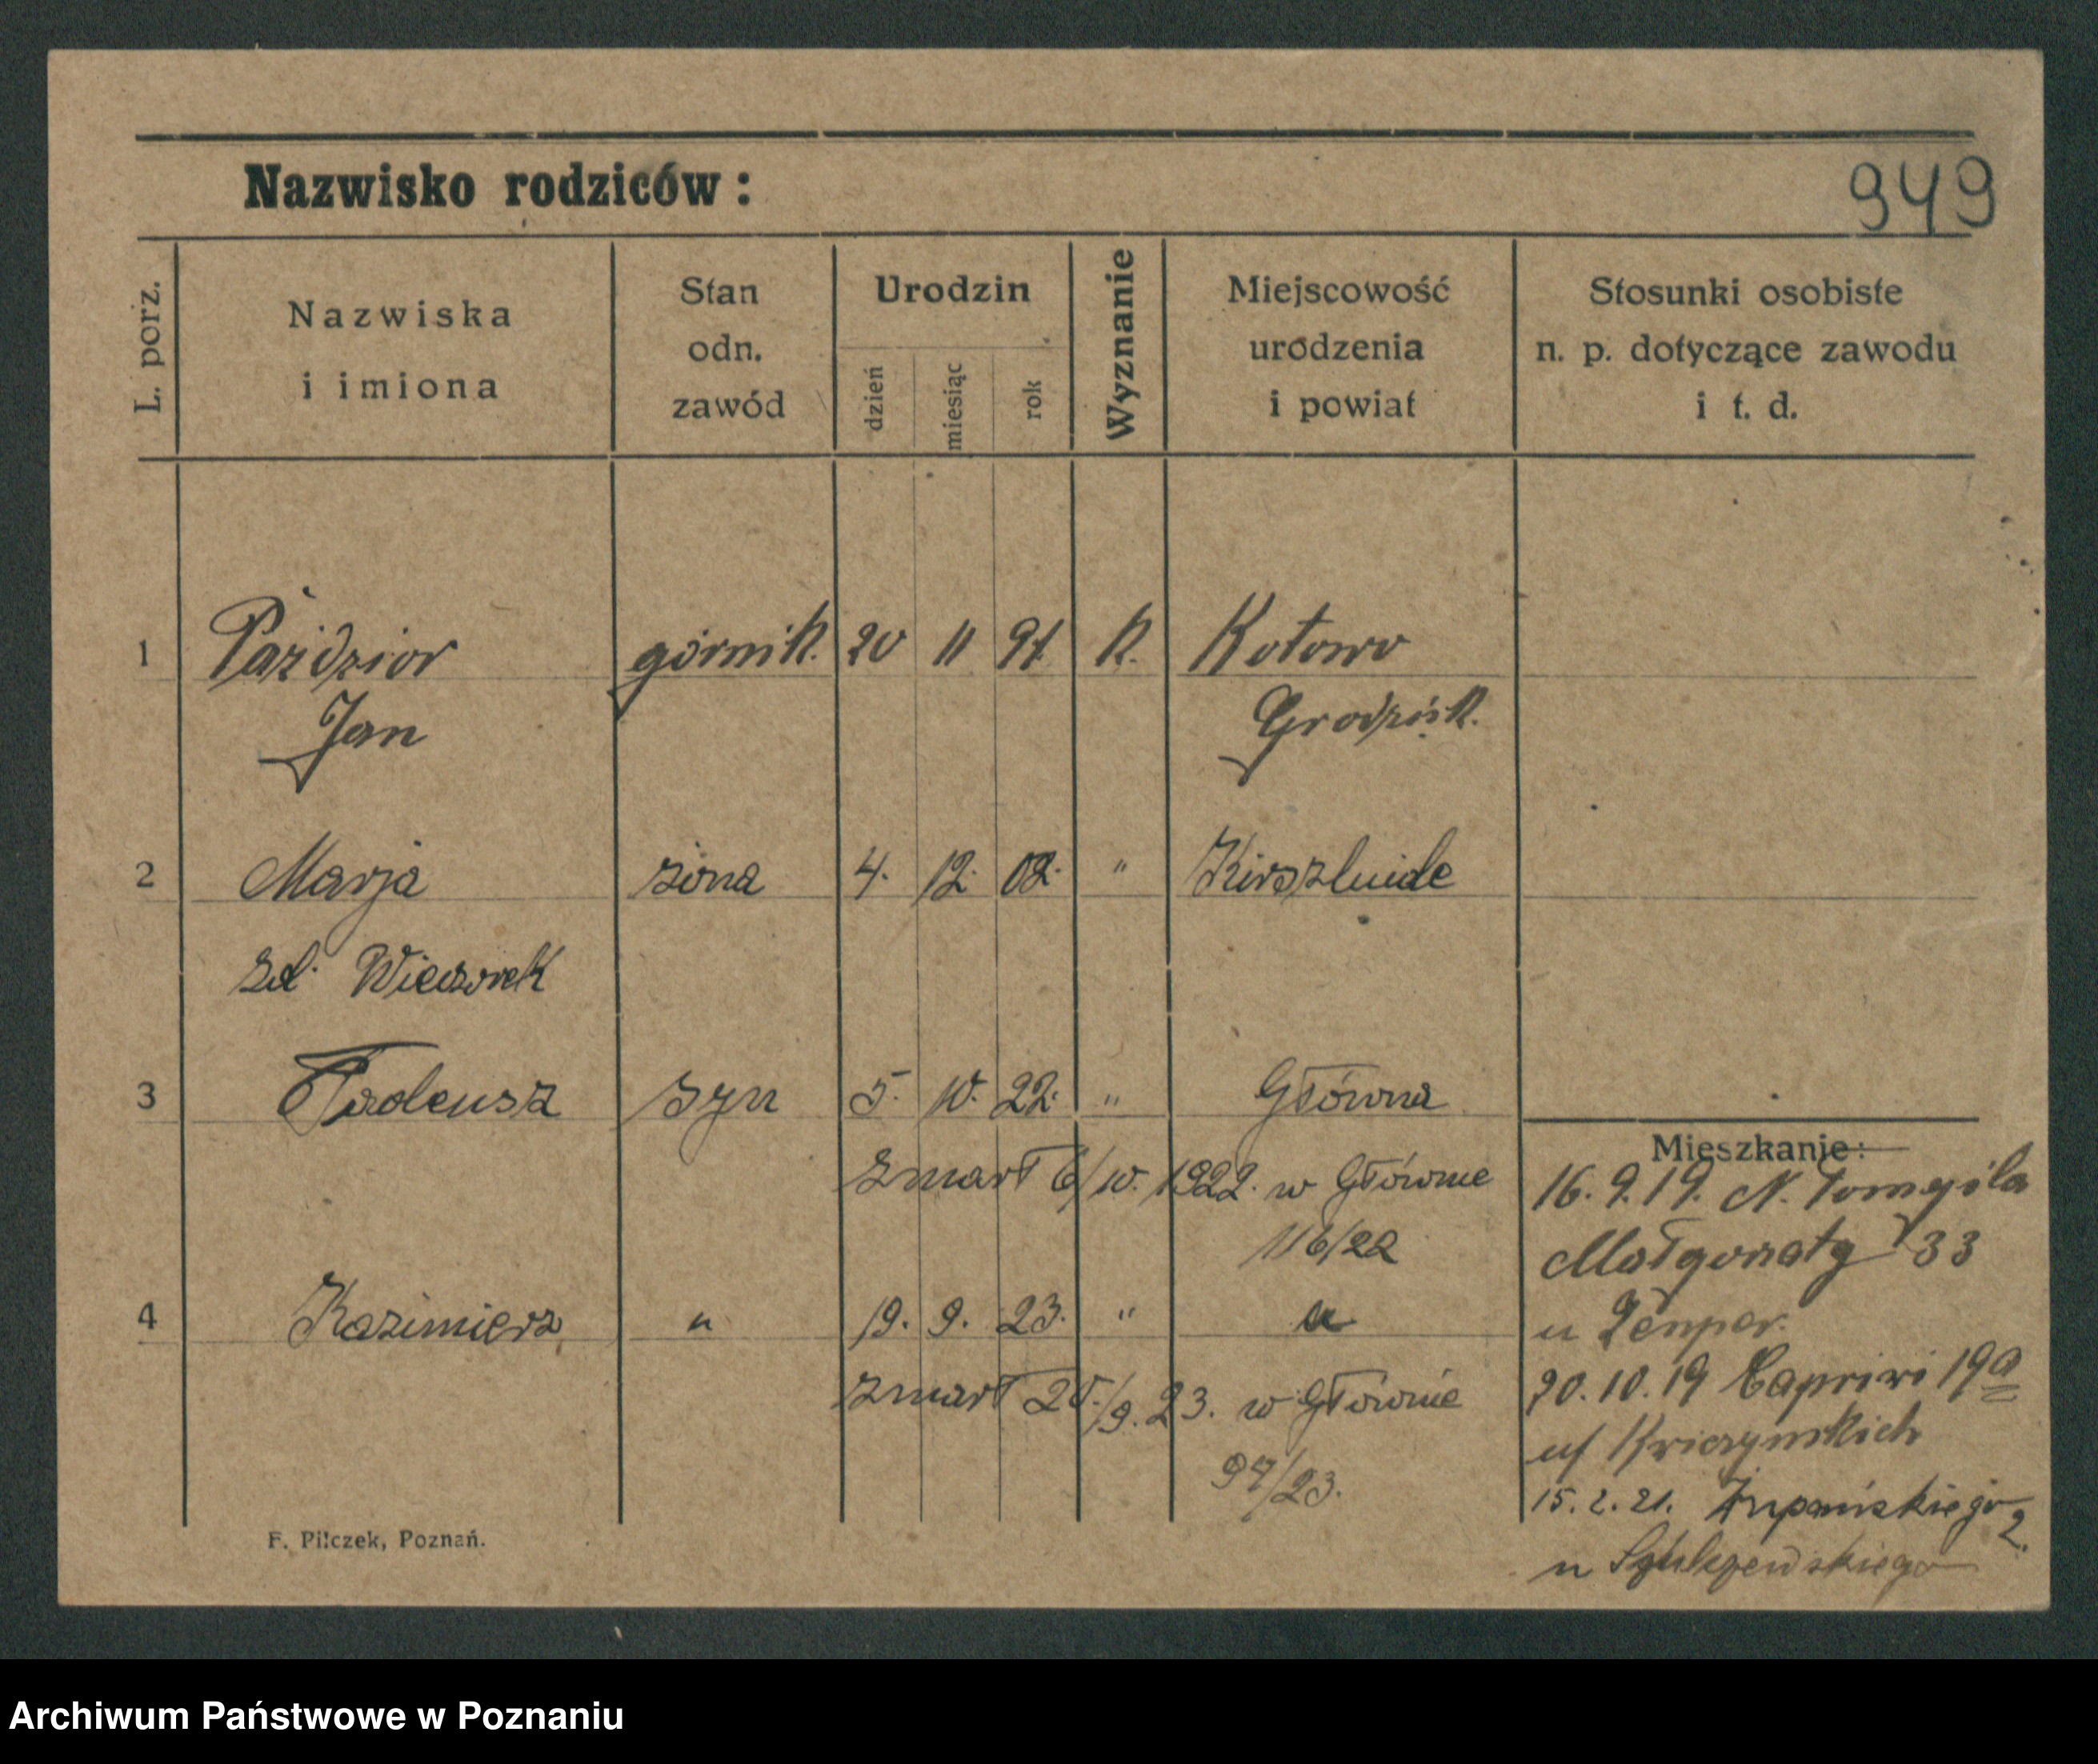 Nazwisko rodziców:
949
L. porz.
Nazwiska
i imiona
Stan
odn.
zawód
Urodzin
dzień
miesiąc
rok
Wyznanie
Miejscowość
urodzenia
i powiat
Stosunki osobiste
n. p. dotyczące zawodu
i t. d.
1 Paździor górnik. 20 11 91 K. Kotowo
Jan Grodzisk.
2 Marja żona 4. 12. 02. " Kirszlinde
zd. Wieczorek
3 Tadeusz syn 5. 10. 22. " Główna
zmarł 6/10. 1922. w Głównie
116/22
4 Kazimierz " 19. 9. 23. " "
zmarł 20./9. 23. w Głównie
97/23.
Mieszkanie:
16. 9. 19. N. Tomyśla
Małgorzaty 33
u
20. 10. 19 Capriwi 19a
15. 2. 21. Żupańskiego 2.
u Szulczewskiego
F. Pilczek, Poznań.
Archiwum Państwowe w Poznaniu